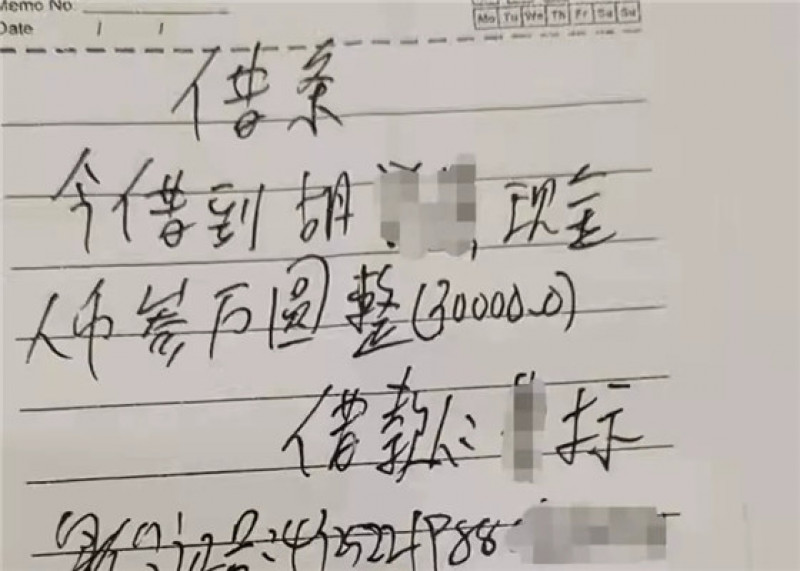 Memo No.
Mo Tu We Th Fr Sa Su
Date / /
借条
今借到胡，现金
人币叁万圆整(30000.0)
借款人: 标
身份证号: